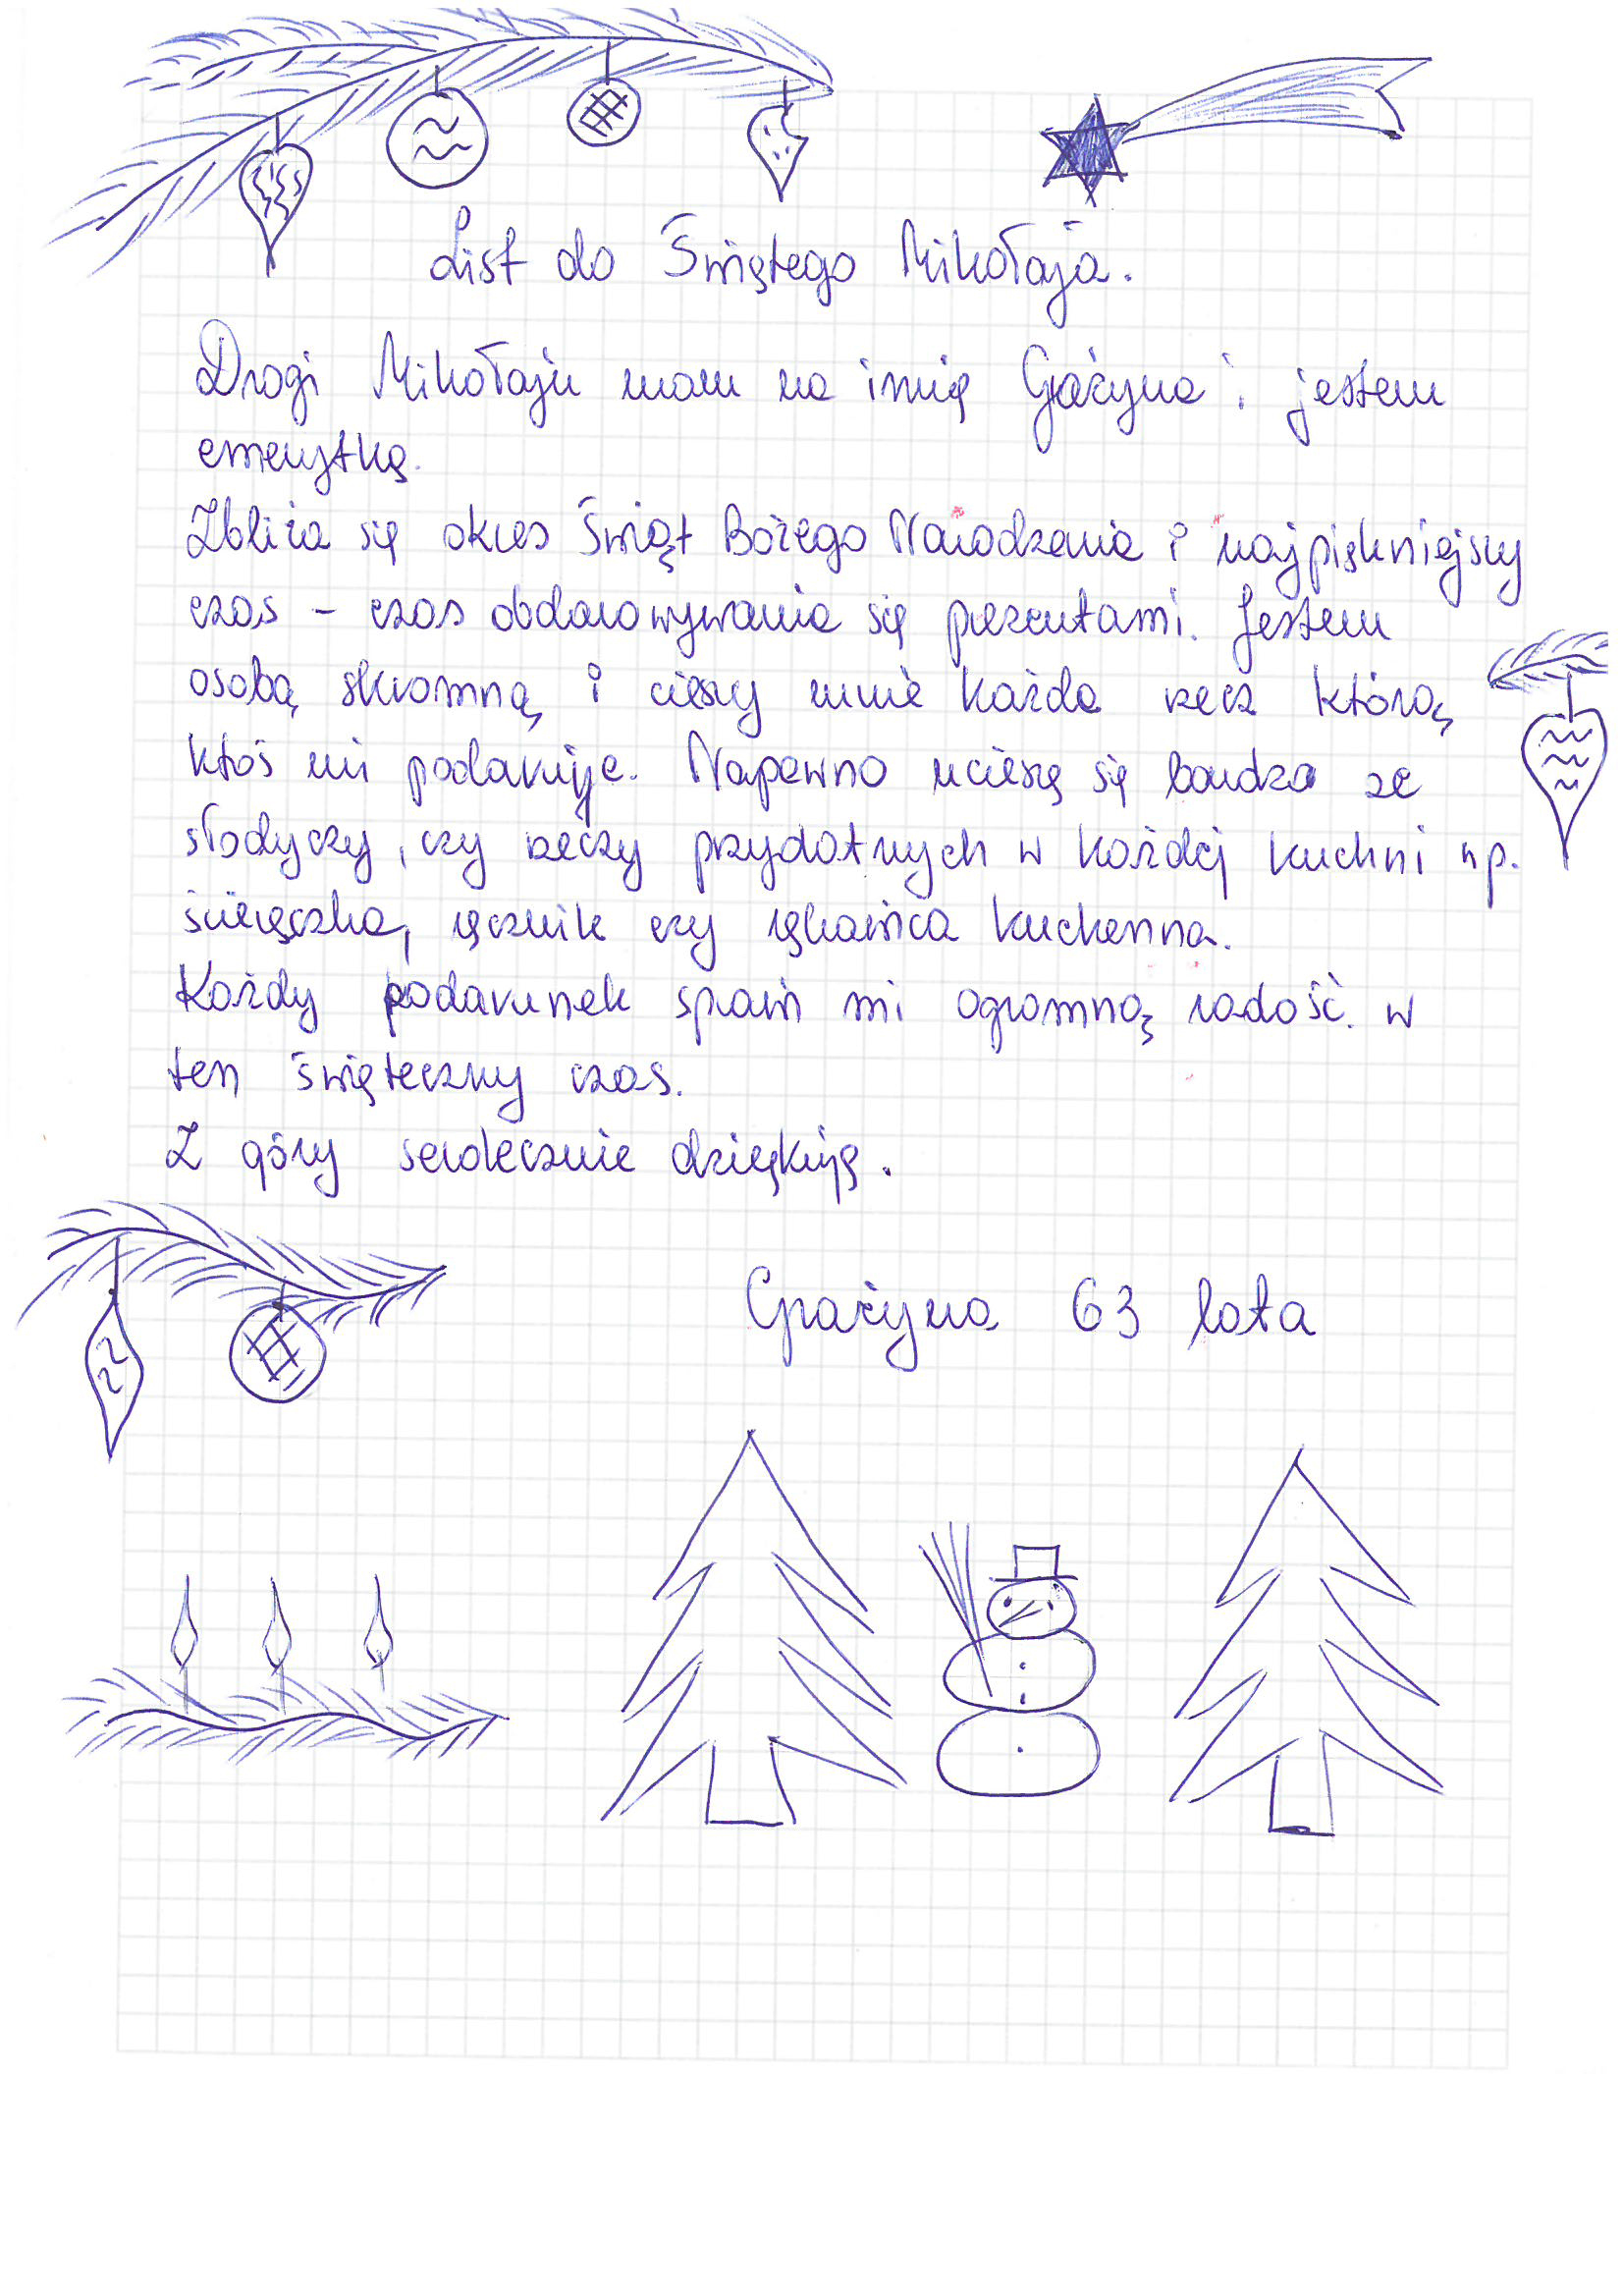 List do Świętego Mikołaja.
Drogi Mikołaju mam na imię Grażyna i jestem
emerytką.
Zbliża się okres Świąt Bożego Narodzenia i najpiękniejszy
czas - czas obdarowywania się prezentami. Jestem
osobą skromną i cieszy mnie każda rzecz którą
ktoś mi podaruje. Napewno ucieszę się bardzo ze
słodyczy, czy rzeczy przydatnych w każdej kuchni np.
ściereczka, ręcznik czy rękawica kuchenna.
Każdy podarunek sprawi mi ogromną radość. w
ten świąteczny czas.
Z góry serdecznie dziękuję.
Grażyna 63 lata